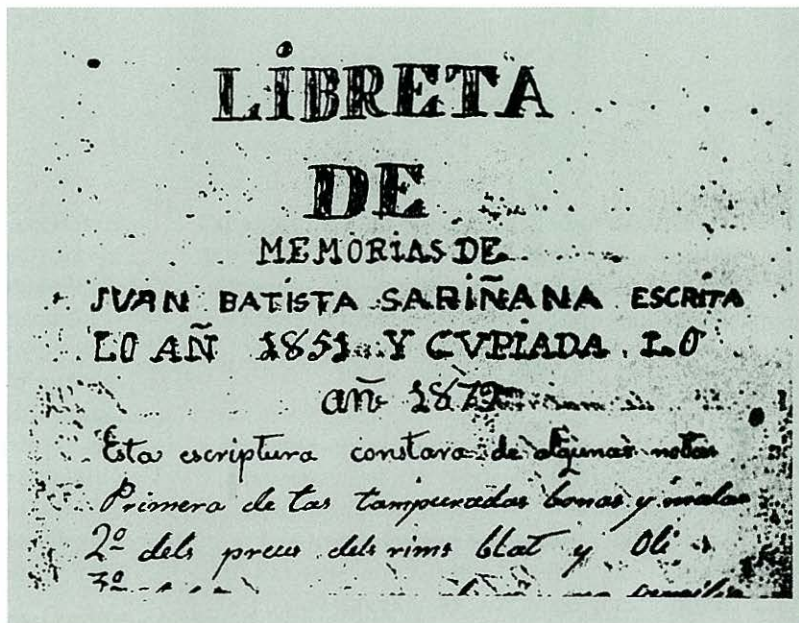 LiBRETA
DE
MEMORiAS DE
JUAN BATiSTA SARiÑANA ESCRiTA
LO AÑ 1851 Y CVPiADA LO
añ 1879
Esta escriptura constara de algunas notas
Primera de las tampuradas bonas y malas
2º dels preus dels rims blat y Oli
3º